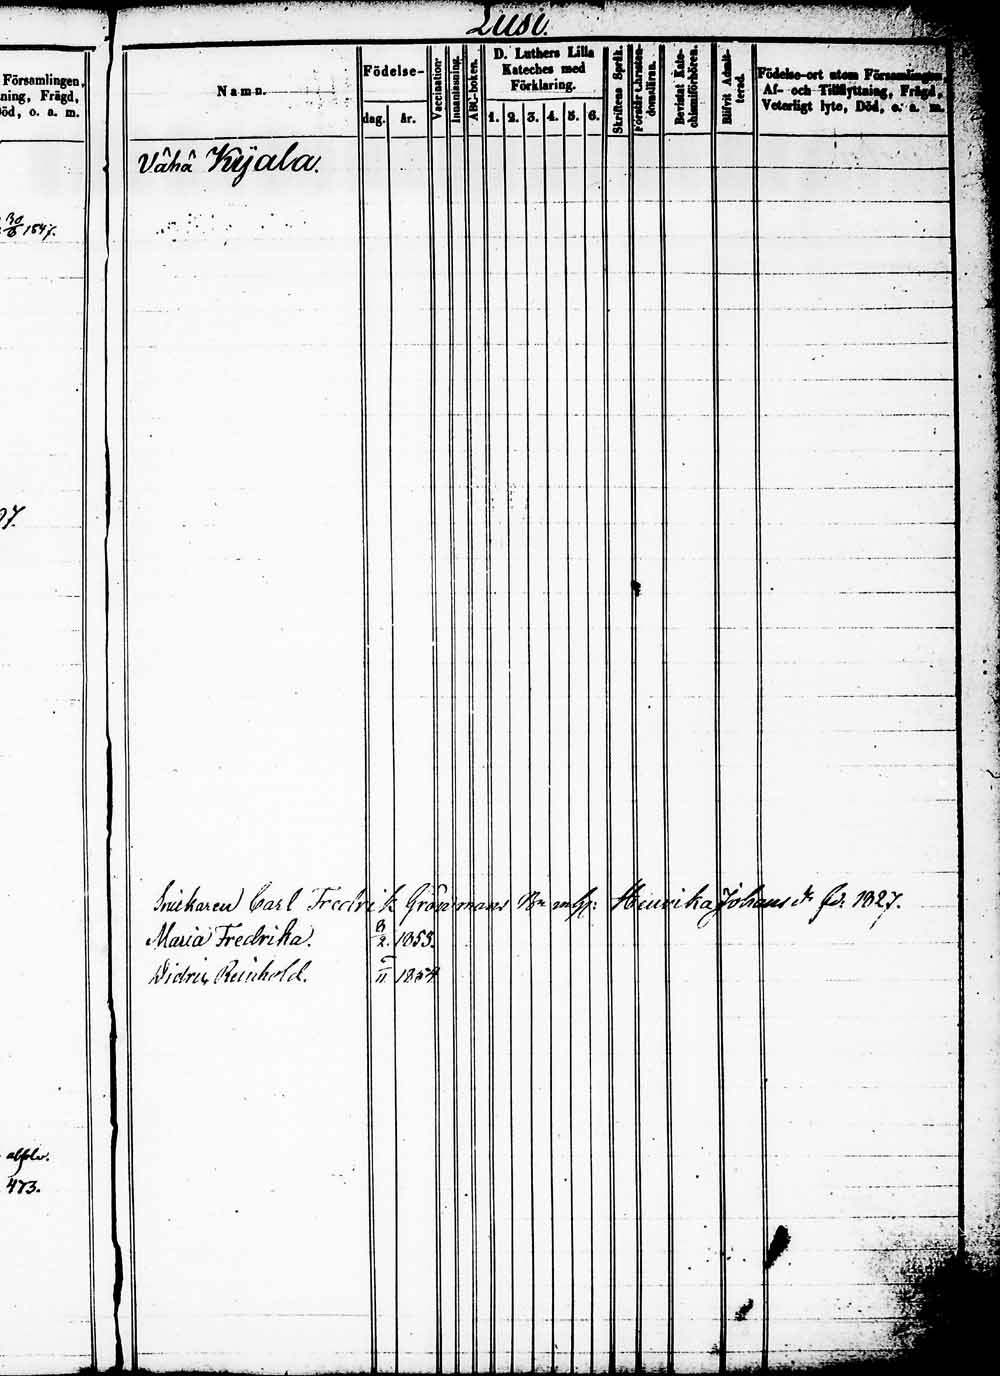 Lusi.
Församlingen,
ning, Frägd,
öd, o. a. m.
30/6 1847.
07.
absolv.
473.
Namn.
Födelse-
dag.
år.
Vaccination.
Innanläsning.
ABC-boken.
D. Luthers Lilla
Kateches med
Förklaring.
1. 2. 3. 4. 5. 6.
Skriftens Språk.
Förstår Christen-
domsläran.
Bevistat Kate-
chismiförhören.
Blifvit Admit-
terad.
Födelse-ort utom Församlingen,
Af- och Tillflyttning, Frägd,
Veterligt lyte, Död, o. a. m.
Vähä Kyÿala.
Snickaren Carl Fredrik Grönmans Bn Henrika Johans dr fd. 1827.
Maria Fredrika. 3/2. 1853.
Didrik Reinhold. 5/11 1854